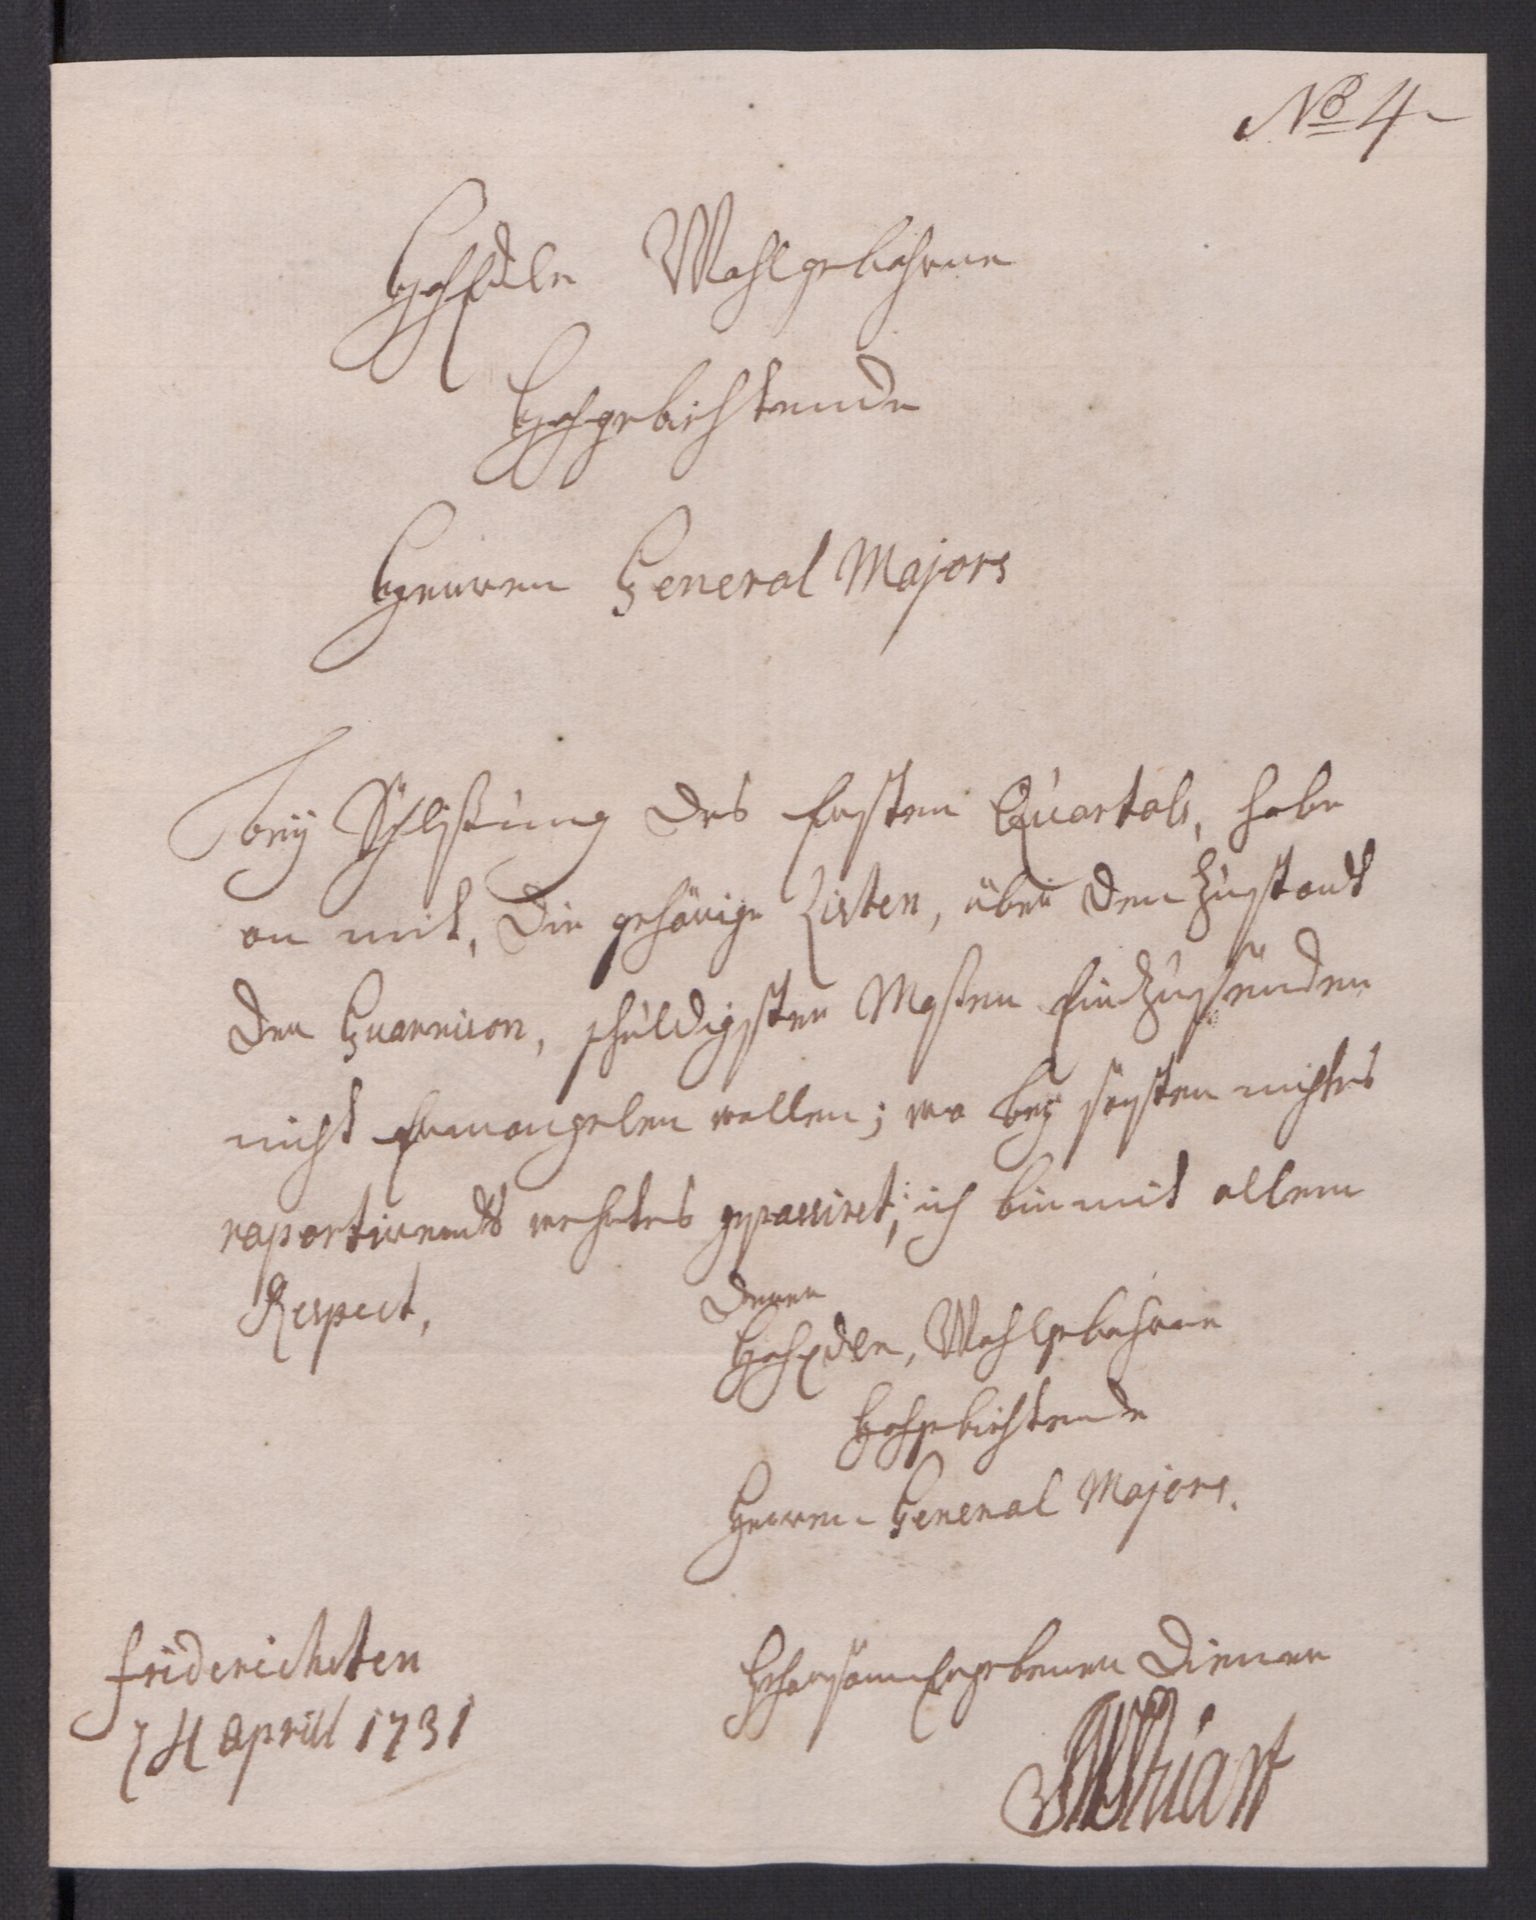 No 4
HochEdle Wohlgebohrne
Hochgebiethende
Herren General Majors
bey Schlissung des Ersten Quartals, habe
an mit, die gehörige Listen, über den Zustandt
der Guarnison, schuldigster Massen Einzusenden
nicht Ermangelen wollen; wo bey sonsten nichtes
raportirendts wehrtes gepassiret; ich bin mit allem
Respect,
Deren
HochEdle, Wohlgebohrne
Hochgebiethende
Herren General Majors.
Friderichsten
Aprill 1731
Gehorsamm Ergebener Diener